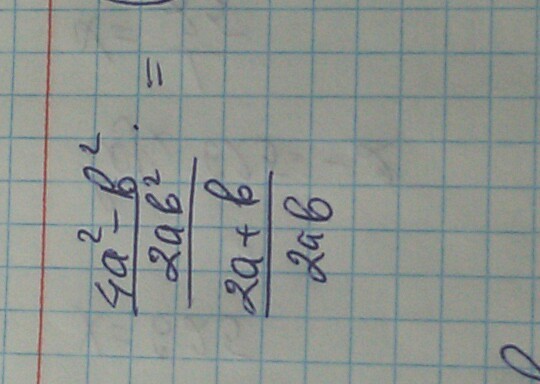 4a² - b²
2ab²
2a + b
2ab
=